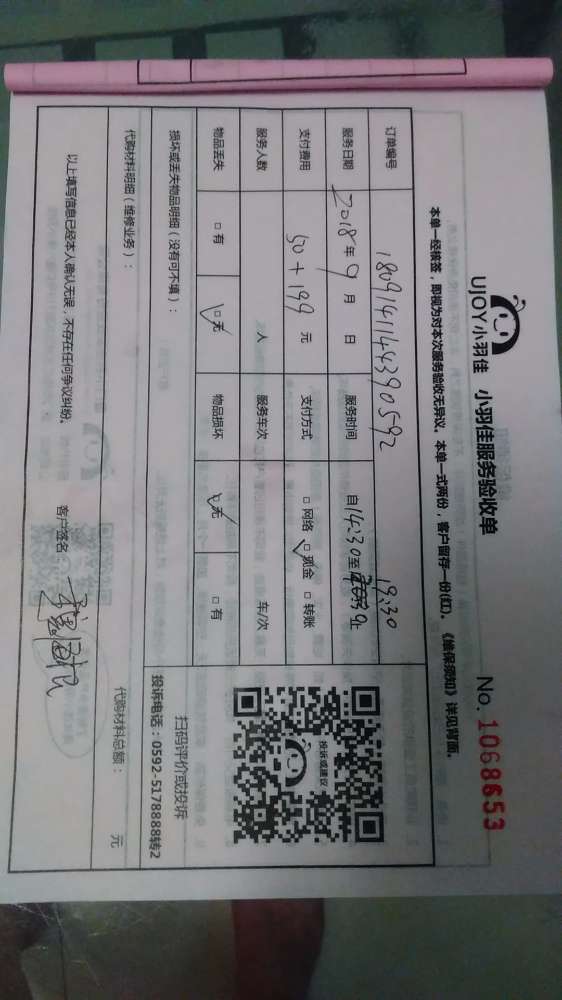 UJOY小羽佳 小羽佳服务验收单 No. 1068653
本单一经核签，即视为对本次服务验收无异议。本单一式两份，客户留存一份(红)。《维保须知》详见背面。
订单编号 1809141144390592
服务日期 2018年9月 日 服务时间 自14:30至 19:30 止
支付费用 50+199 元 支付方式 □网络 □现金 □转账
服务人数 人 服务车次 车/次
物品丢失 □有 □无 物品损坏 □无 □有
投诉或建议
扫码评价或投诉
投诉电话：0592-5178888转2
损坏或丢失物品明细（没有可不填）：
代购材料明细（维修业务）： 代购材料总额： 元
以上填写信息已经本人确认无误，不存在任何争议纠纷。 客户签名：